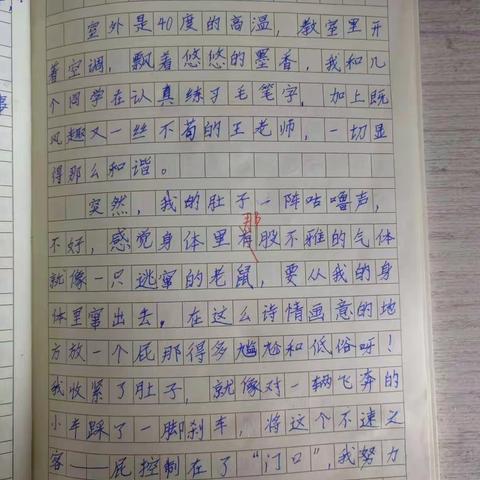 室外是40度的高温，教室里开
着空调，飘着悠悠的墨香，我和几
个同学在认真练习毛笔字。加上既
风趣又一丝不苟的王老师，一切显
得那么和谐。
突然，我的肚子一阵咕噜声，
那
不好，感觉身体里有股不雅的气体
就像一只逃窜的老鼠，要从我的身
体里窜出去。在这么诗情画意的地
方放一个屁那得多尴尬和低俗呀！
我收紧了肚子，就像对一辆飞奔的
小车踩了一脚刹车，将这个不速之
客——屁控制在了“门口”，我努力